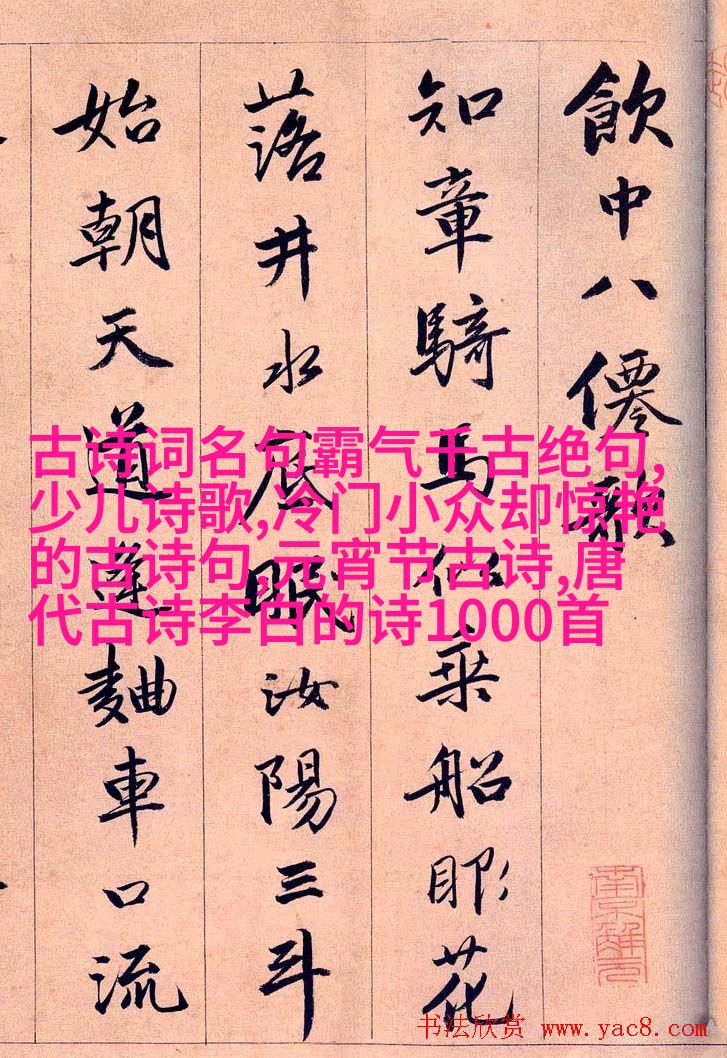 飲中八僊歌
知章騎馬似乘船眼花
落井水底眠汝陽三斗
始朝天道逢麯車口流
南京解元
古诗词名句霸气千古绝句,
少儿诗歌,冷门小众却惊艳
的古诗句,元宵节古诗,唐
代古诗李白的诗1000首
书法欣赏 www.yac8.com